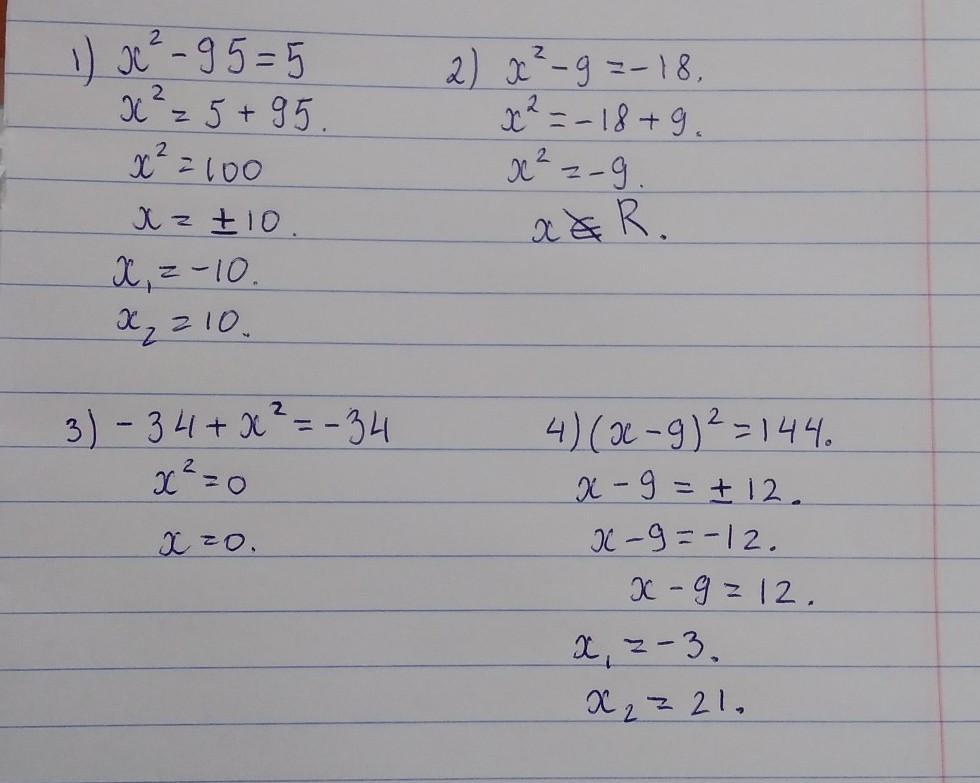 1) x² - 95 = 5
x² = 5 + 95.
x² = 100
x = ± 10.
x₁ = -10.
x₂ = 10.
2) x² - 9 = -18.
x² = -18 + 9.
x² = -9.
x ∉ R.
3) -34 + x² = -34
x² = 0
x = 0.
4) (x - 9)² = 144.
x - 9 = ± 12.
x - 9 = -12.
x - 9 = 12.
x₁ = -3.
x₂ = 21.